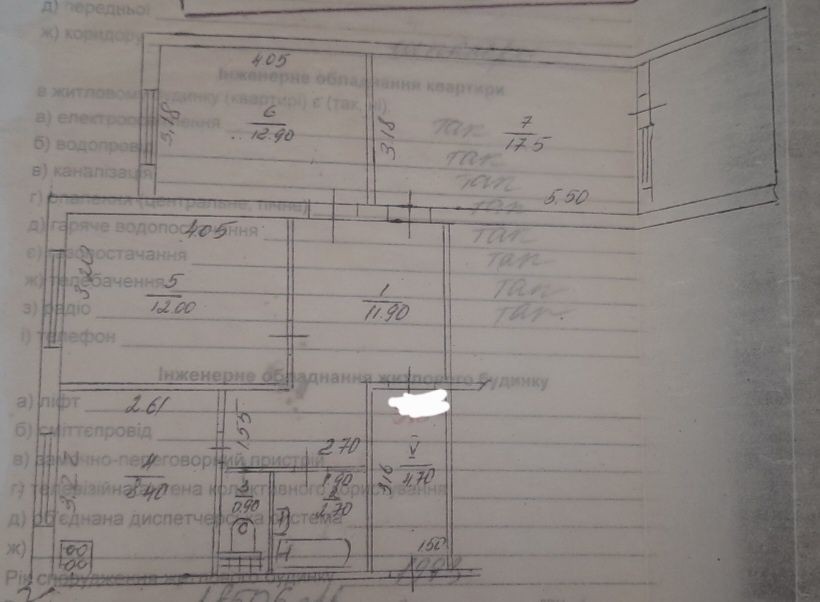 д) передньої
ж) коридору
405
Інженерне обладнання квартири
в житловому будинку (квартирі) є (так, ні):
а) електроосвітлення
б) водопровід
в) каналізація
г) опалення (центральне, пічне)
д) гаряче водопостачання
є) газопостачання
ж) телебачення
з) радіо
і) телефон
так
так
так
так
так
так
так
так
3,18
6
12.90
3.18
7
17.5
5,50
405
5
12.00
1
11.90
Інженерне обладнання житлового будинку
а) ліфт
б) сміттєпровід
в) замочно-переговорний пристрій
г) телевізійна антена колективного користування
д) об'єднана диспетчерська система
ж)
Рік спорудження житлового будинку
2.61
155
2.70
4
8.40
3
0.90
1.90
2
2.70
316
V
4.70
150
1993